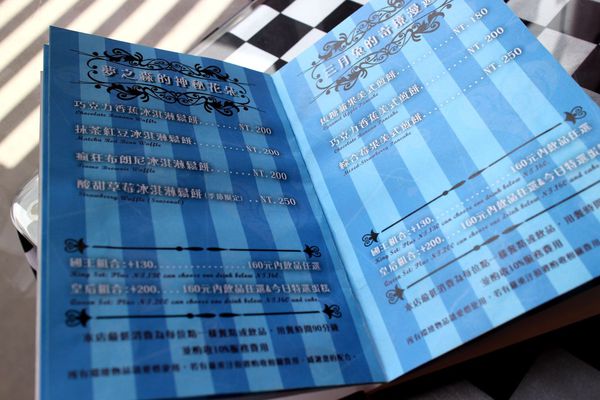 夢之森的神秘花朵
巧克力香蕉冰淇淋鬆餅........NT.200
Chocolate Banana Waffle
抹茶紅豆冰淇淋鬆餅..........NT.200
Matcha Red Bean Waffle
瘋狂布朗尼冰淇淋鬆餅........NT.200
Brownie Waffle
酸甜草莓冰淇淋鬆餅(季節限定)...NT.250
Strawberry Waffle (Seasonal)
國王組合:+130..............160元內飲品任選
King Set: Plus NT.130 can choose one drink below NT.160
皇后組合:+200....160元內飲品任選&今日特選蛋糕
Queen Set: Plus NT.200 can choose one drink below NT.160 and cake.
本店最低消費為每位點一樣餐點或飲品，用餐時間90分鐘
並酌收10%服務費用
三月兔的奇境漫遊
NT.180
焦糖蘋果美式煎餅......NT.200
巧克力香蕉美式煎餅......NT.250
綜合莓果美式煎餅
國王組合:+130..............160元內飲品任選
皇后組合:+200....160元內飲品任選&今日特選蛋糕
本店最低消費為每位點一樣餐點或飲品，用餐
並酌收10%服務費用